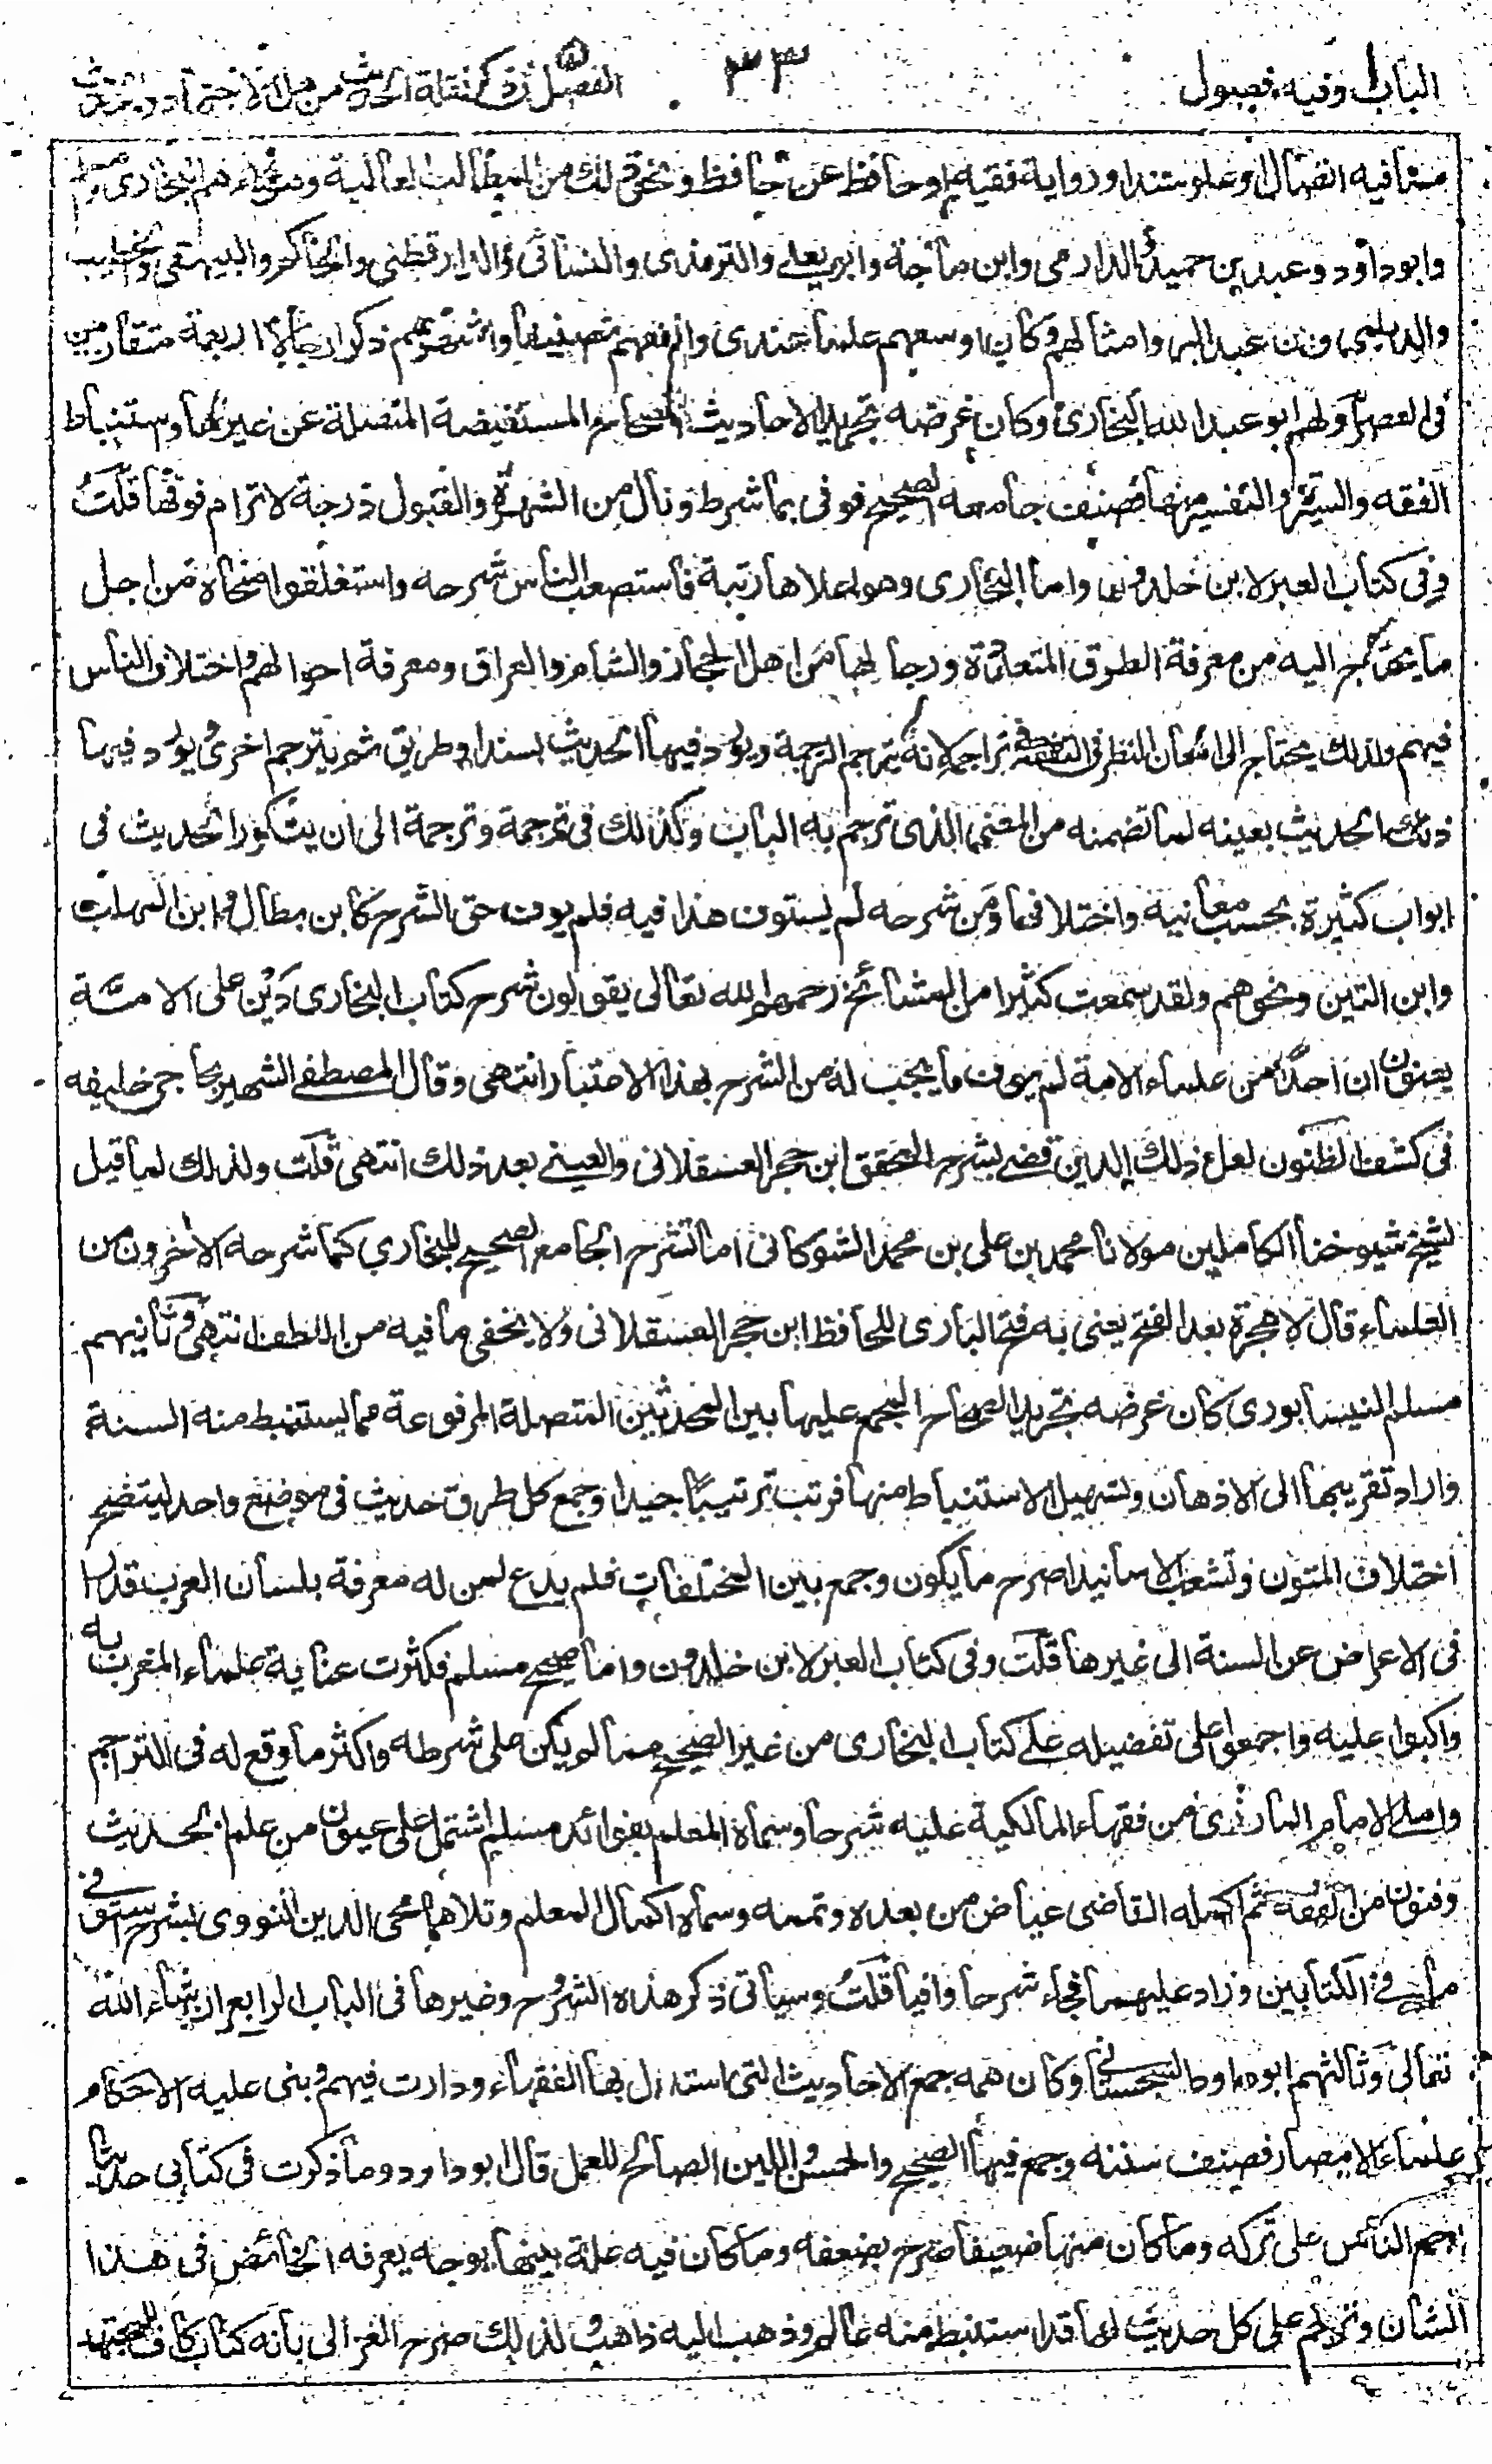 الباب وفيه فصول
٣٣
الفصل في ذكر نقلة الحديث من قبل
فيه اتصال او علو سند او رواية فقيه او حافظ عن حافظ ونحو ذلك من المطالب العالية وهؤلاء هم البخاري ومسلم
وابو داود وعبد بن حميد والدارمي وابن ماجة وابو يعلى والترمذي والنسائي والدارقطني والحاكم والبيهقي والخطيب
والديلمي وابن عبد البر وامثالهم وكان اوسعهم علما عندي وانفعهم تصنيفا واشهرهم ذكرا رجالا اربعة متقاربين
في العصر اولهم ابو عبد الله البخاري وكان غرضه تجريد الاحاديث الصحاح المستفيضة المتصلة عن غيرها واستنباط
الفقه والسيرة والتفسير منها فصنف جامعه الصحيح فوفى بما شرط ونال من الشهرة والقبول درجة لا ترام فوقها قلت
وفي كتاب العبر لابن خلدون واما البخاري وهو اعلاها رتبة فاستصعب الناس شرحه واستغلقوا منحاه من اجل
ما يحتاج اليه من معرفة الطرق المتعددة ورجالها من اهل الحجاز والشام والعراق ومعرفة احوالهم واختلاف الناس
فيهم ولذلك يحتاج الى امعان النظر في التفقه في تراجمه لانه يترجم الترجمة ويورد فيها الحديث بسند او طريق ثم يترجم اخرى يورد فيها
ذلك الحديث بعينه لما تضمنه من المعنى الذي ترجم به الباب وكذلك في ترجمة وترجمة الى ان يتكرر الحديث في
ابواب كثيرة بحسب معانيه واختلافها ومن شرحه لم يستوف هذا فيه فلم يوف حق الشرح كابن بطال وابن المهلب
وابن التين ونحوهم ولقد سمعت كثيرا من المشائخ رحمهم الله تعالى يقولون شرح كتاب البخاري دَيْن على الامّة
يعنون ان احدًا من علماء الامة لم يوف ما يجب له من الشرح بهذا الاعتبار انتهى وقال المصطفى الشهير بحاجي خليفه
في كشف الظنون لعل ذلك الدين قضى بشرح المحقق ابن حجر العسقلاني والعيني بعد ذلك انتهى قلت ولذلك لما قيل
لشيخ شيوخنا الكاملين مولانا محمد بن علي بن محمد الشوكاني اما تشرح الجامع الصحيح للبخاري كما شرحه الآخرون من
العلماء قال لا هجرة بعد الفتح يعني به فتح الباري للحافظ ابن حجر العسقلاني ولا يخفى ما فيه من اللطف انتهى وثانيهم
مسلم النيسابوري كان غرضه تجريد الصحاح المجمع عليها بين المحدثين المتصلة المرفوعة مما يستنبط منه السنة
واراد تقريبها الى الاذهان وتسهيل الاستنباط منها فرتب ترتيبًا جيدا وجمع كل طرق حديث في موضع واحد ليتضح
اختلاف المتون وتشعب الاسانيد اصرح ما يكون وجمع بين المختلفات فلم يدع لمن له معرفة بلسان العرب عذرا
في الاعراض عن السنة الى غيرها قلت وفي كتاب العبر لابن خلدون واما صحيح مسلم فكثرت عناية علماء المغرب به
واكبوا عليه واجمعوا على تفضيله على كتاب البخاري من غير الصحيح مما لم يكن على شرطه واكثر ما وقع له في التراجم
واملى الامام المارزي من فقهاء المالكية عليه شرحا وسماه المعلم بفوائد مسلم اشتمل على عيون من علم الحديث
وفنون من الفقه ثم اكمله القاضي عياض من بعده وتممه وسماه اكمال المعلم وتلاهما محي الدين النووي بشرح استوفى
ما في الكتابين وزاد عليهما فجاء شرحا وافيا قلت وسياتي ذكر هذه الشروح وغيرها في الباب الرابع ان شاء الله
تعالى وثالثهم ابو داود السجستاني وكان همه جمع الاحاديث التي استدل بها الفقهاء ودارت فيهم وبنى عليه الاحكام
علماء الامصار فصنف سننه وجمع فيها الصحيح والحسن واللين الصالح للعمل قال ابو داود وما ذكرت في كتابي حديثا
اجمع الناس على تركه وما كان منها ضعيفا صرح بضعفه وما كان فيه علة بينها بوجه يعرفه الخائض في هذا
الشان وترجم على كل حديث لما قد استنبط منه عالم وذهب اليه ذاهب لذلك صرح الغزالي بانه كتاب كاف للمجتهد